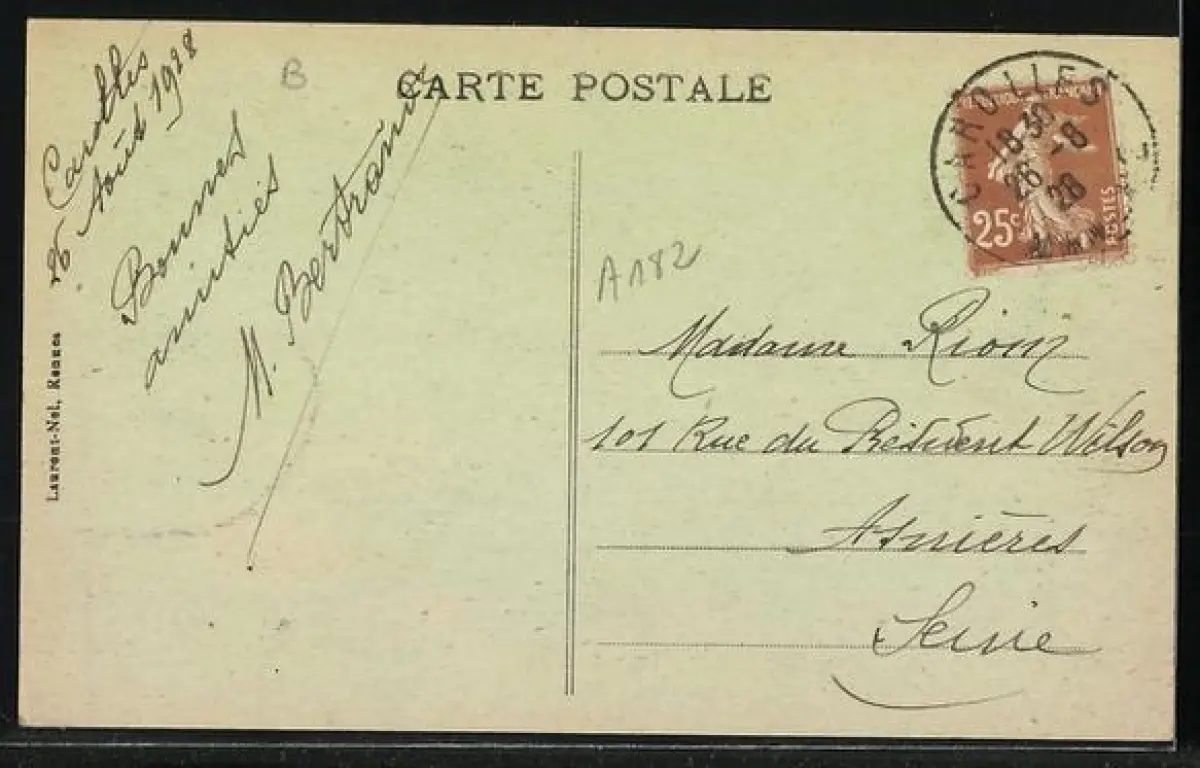 CARTE POSTALE
B
Carolles
26 Août 1928
Bonnes
amitiés
M. Bertrand
Laurent-Nel, Rennes
CAROLLES
18-30
26-8
28
25c
POSTES
A182
Madame
101 Rue du Président Wilson
Asnières
Seine